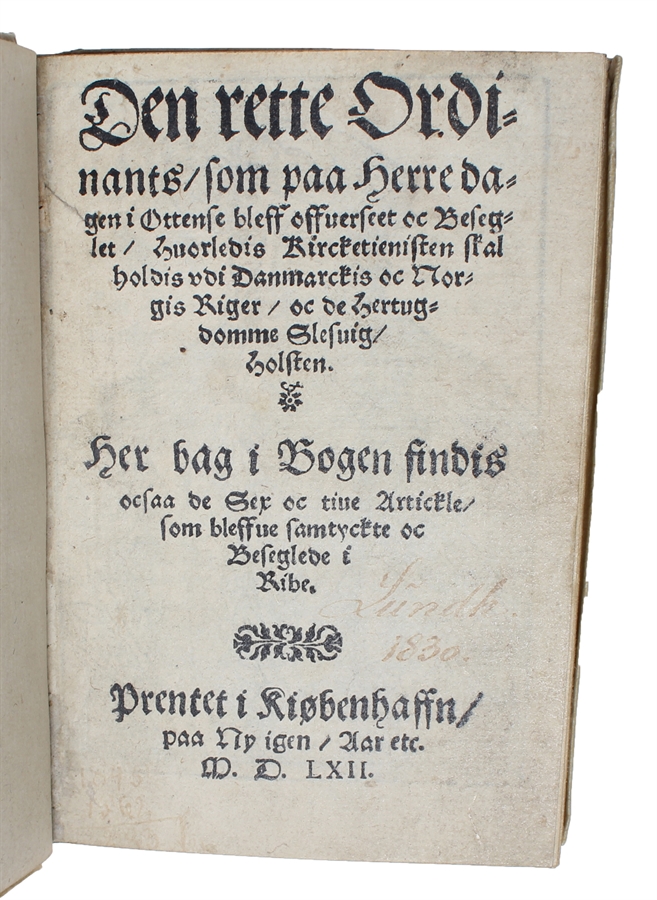 Den rette Ordi-
nants/ som paa Herreda-
gen i Ottense bleff offuerseet oc Beseg-
let/ Huorledis Kircketienisten skal
holdis vdi Danmarckis oc Nor-
gis Riger/ oc de Hertug-
domme Slesuig/
Holsten.
Her bag i Bogen findis
ocsaa de Sex oc tiue Artickle/
som bleffue samtyckte oc
Beseglede i
Ribe.
Lundh
1830.
Prentet i Kiøbenhaffn/
paa Ny igen/ Aar etc.
M. D. LXII.